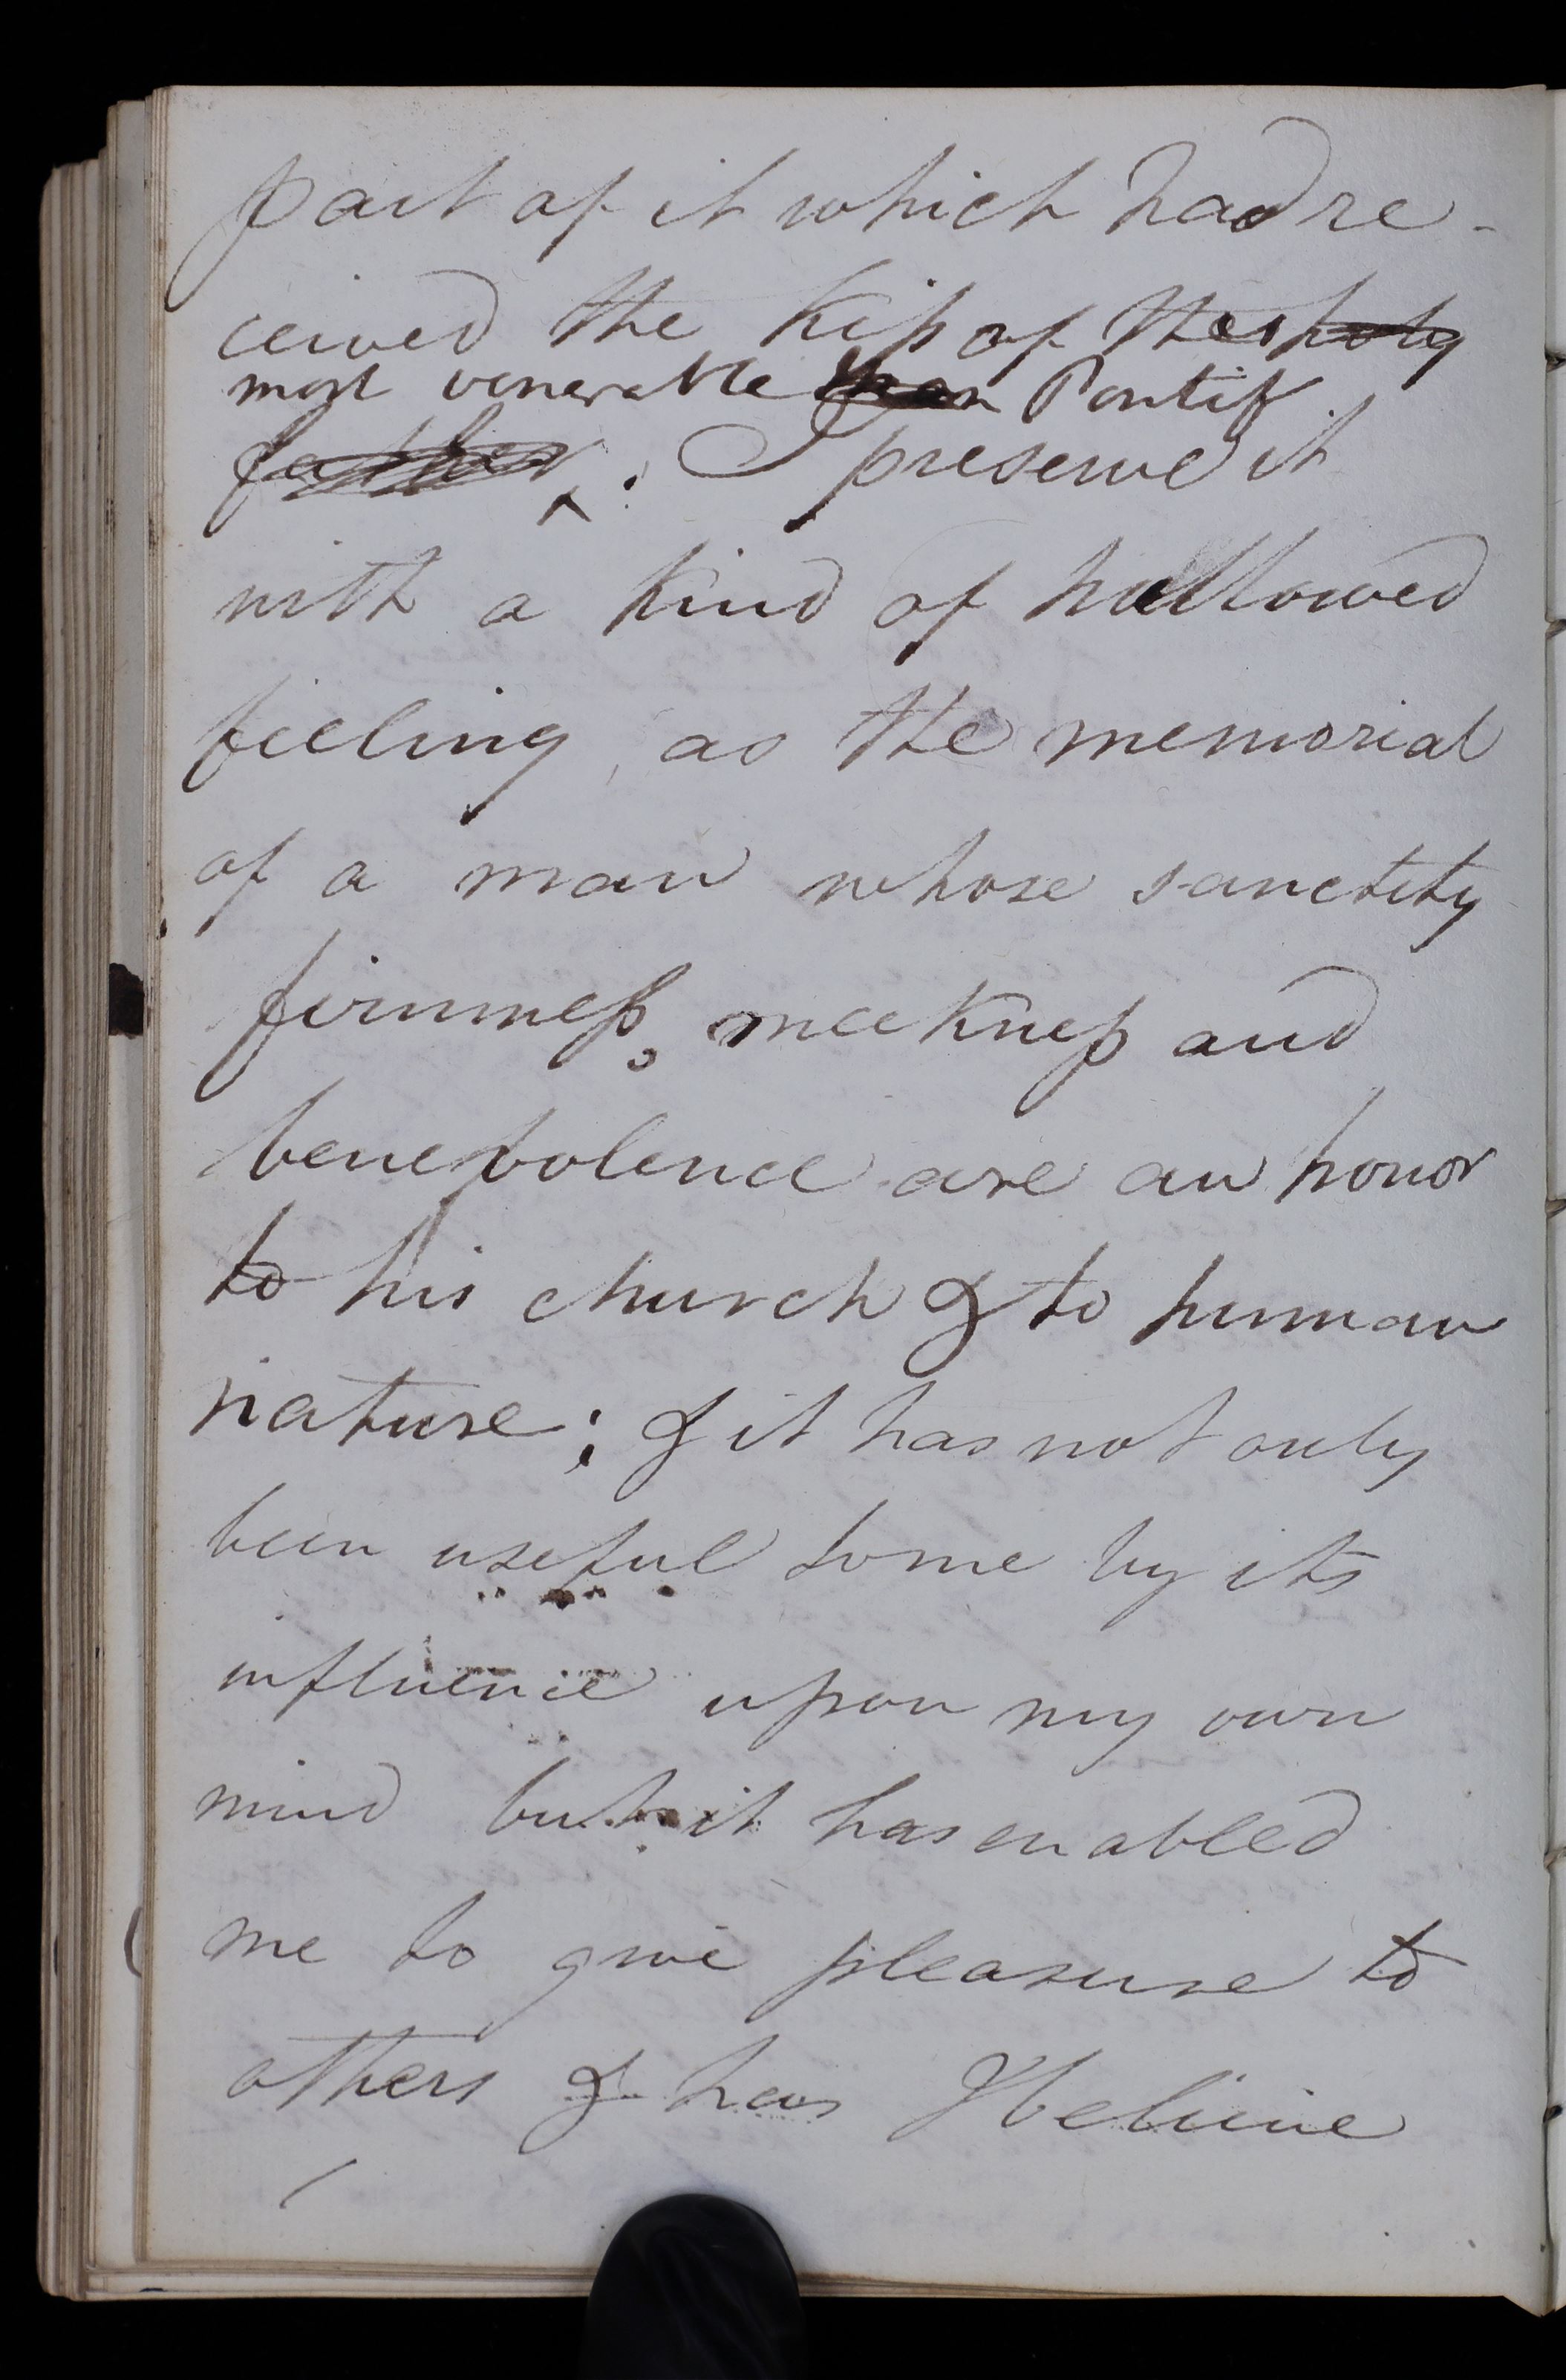 part of it which had re-
ceived the Kiss of this holy
most venerable man Pontif
father. I preserve it
with a kind of hallowed
feeling, as the memorial
of a man whose sanctity
firmness, meekness and
benevolence are an honor
to his church & to human
nature; & it has not only
been useful to me by its
influence upon my own
mind but it has enabled
me to give pleasure to
others & has I believe